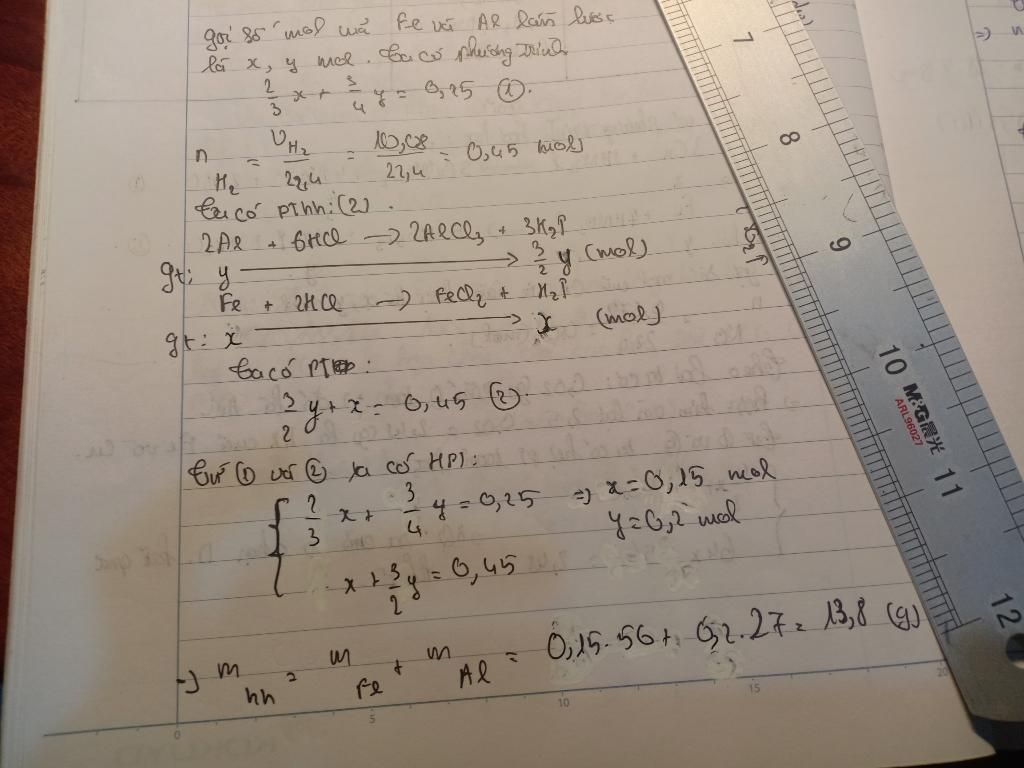 gọi số mol của Fe và Al lần lược
là x, y mol. Ta có phương trình
2/3 x + 3/4 y = 0,25 ①.
n H₂ = V H₂ / 22,4 = 10,08 / 22,4 = 0,45 mol
Ta có PThh: (2).
2Al + 6HCl → 2AlCl₃ + 3H₂↑
gt: y → 3/2 y (mol)
Fe + 2HCl → FeCl₂ + H₂↑
gt: x → x (mol)
Ta có PT:
3/2 y + x = 0,45 ②.
Từ ① và ② ta có HPT:
{ 2/3 x + 3/4 y = 0,25 ⇒ x = 0,15 mol
y = 0,2 mol
x + 3/2 y = 0,45
→ m hh = m Fe + m Al = 0,15.56 + 0,2.27 = 13,8 (g)
0 5 10 15 20
7
8
9
10
M&G 晨光
ARL96027
11
12